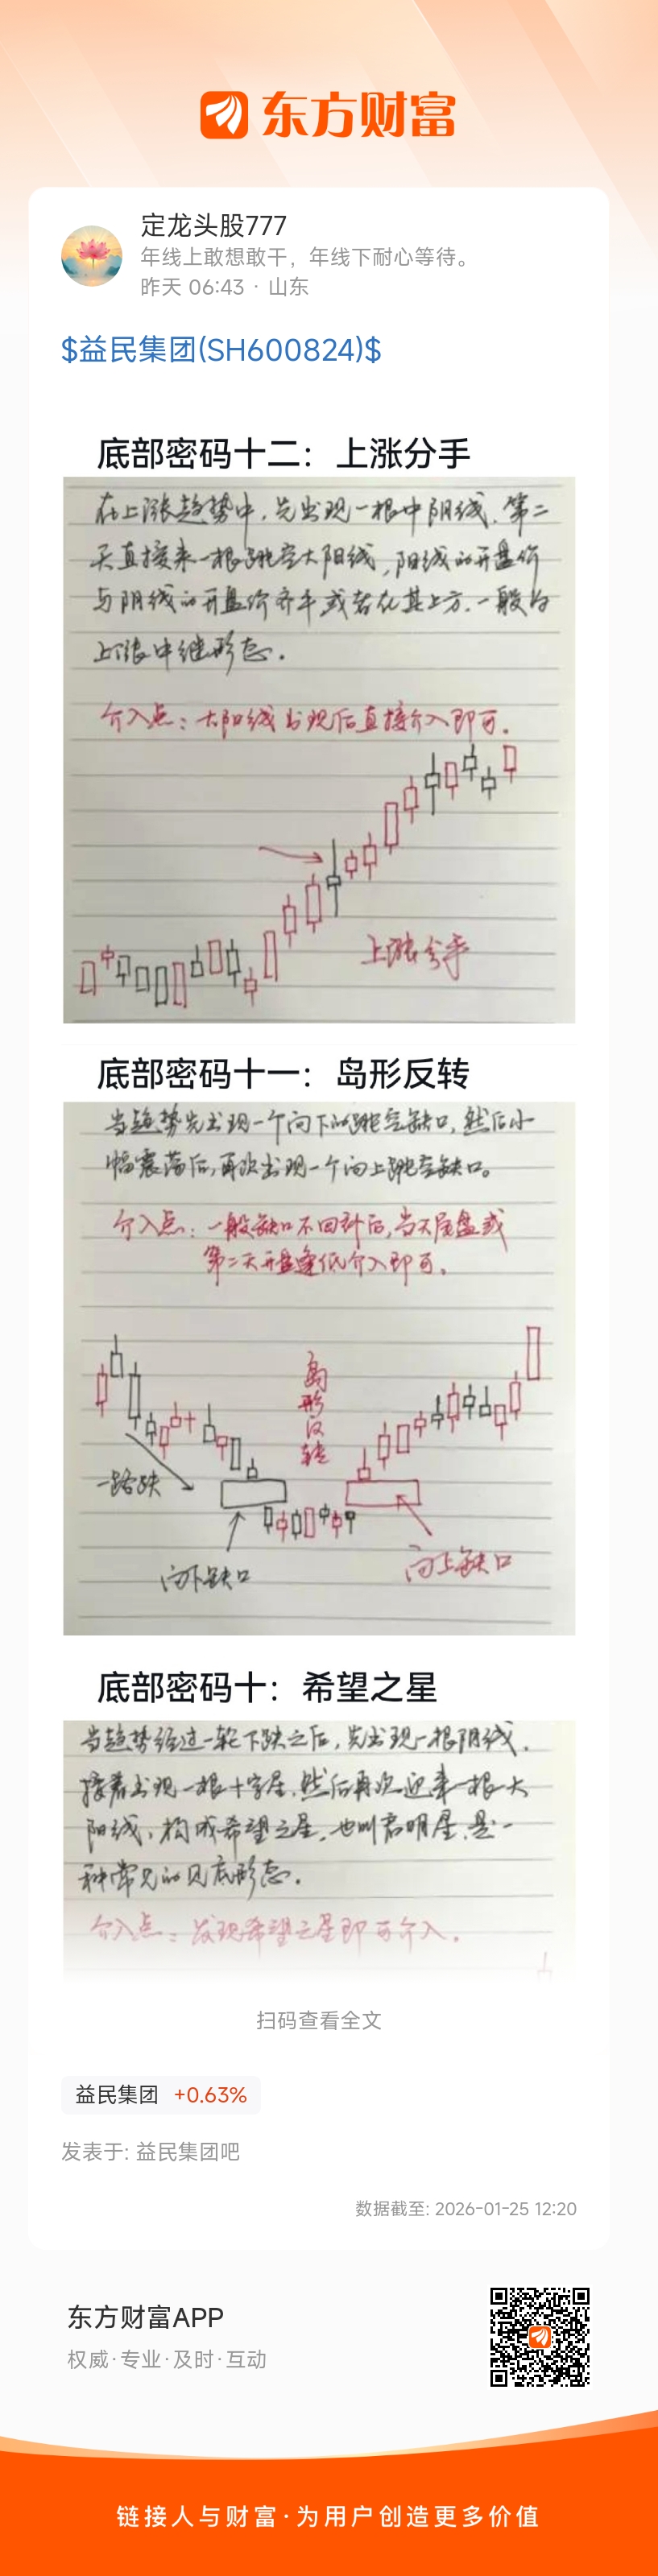 东方财富
定龙头股777
年线上敢想敢干，年线下耐心等待。
昨天 06:43 · 山东
$益民集团(SH600824)$
底部密码十二：上涨分手
在上涨趋势中，先出现一根中阴线，第二
天直接来一根跳空大阳线，阳线的开盘价
与阴线的开盘价齐平或者在其上方，一般为
上涨中继形态。
介入点：大阳线出现后直接介入即可。
上涨分手
底部密码十一：岛形反转
当趋势先出现一个向下的跳空缺口，然后小
幅震荡后，再次出现一个向上跳空缺口。
介入点：一般缺口不回补后，当天尾盘或
第二天开盘逢低介入即可。
岛形反转
一路跌
向下缺口
向上缺口
底部密码十：希望之星
当趋势经过一轮下跌之后，先出现一根阴线，
接着出现一根十字星，然后再次迎来一根大
阳线，构成希望之星，也叫启明星，是一
种常见的见底形态。
介入点：发现希望之星即可介入。
扫码查看全文
益民集团 +0.63%
发表于: 益民集团吧
数据截至: 2026-01-25 12:20
东方财富APP
权威·专业·及时·互动
链接人与财富·为用户创造更多价值